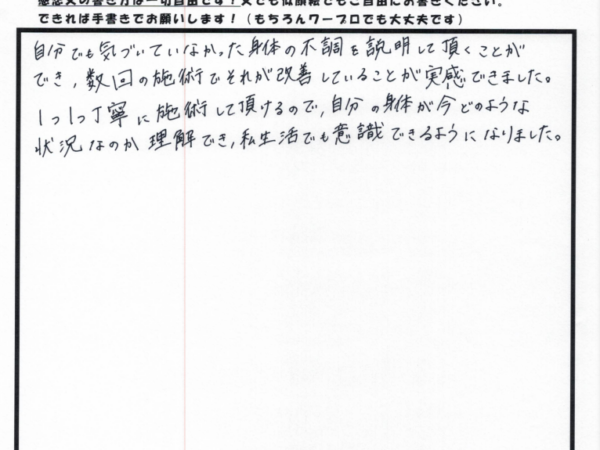 感想文の書き方は一切自由です!文でも似顔絵でもご自由にお書きください。
できれば手書きでお願いします!(もちろんワープロでも大丈夫です)
自分でも気づいていなかった身体の不調を説明して頂くことが
でき,数回の施術でそれが改善していることが実感できました。
1つ1つ丁寧に施術して頂けるので,自分の身体が今どのような
状況なのか理解でき,私生活でも意識できるようになりました。